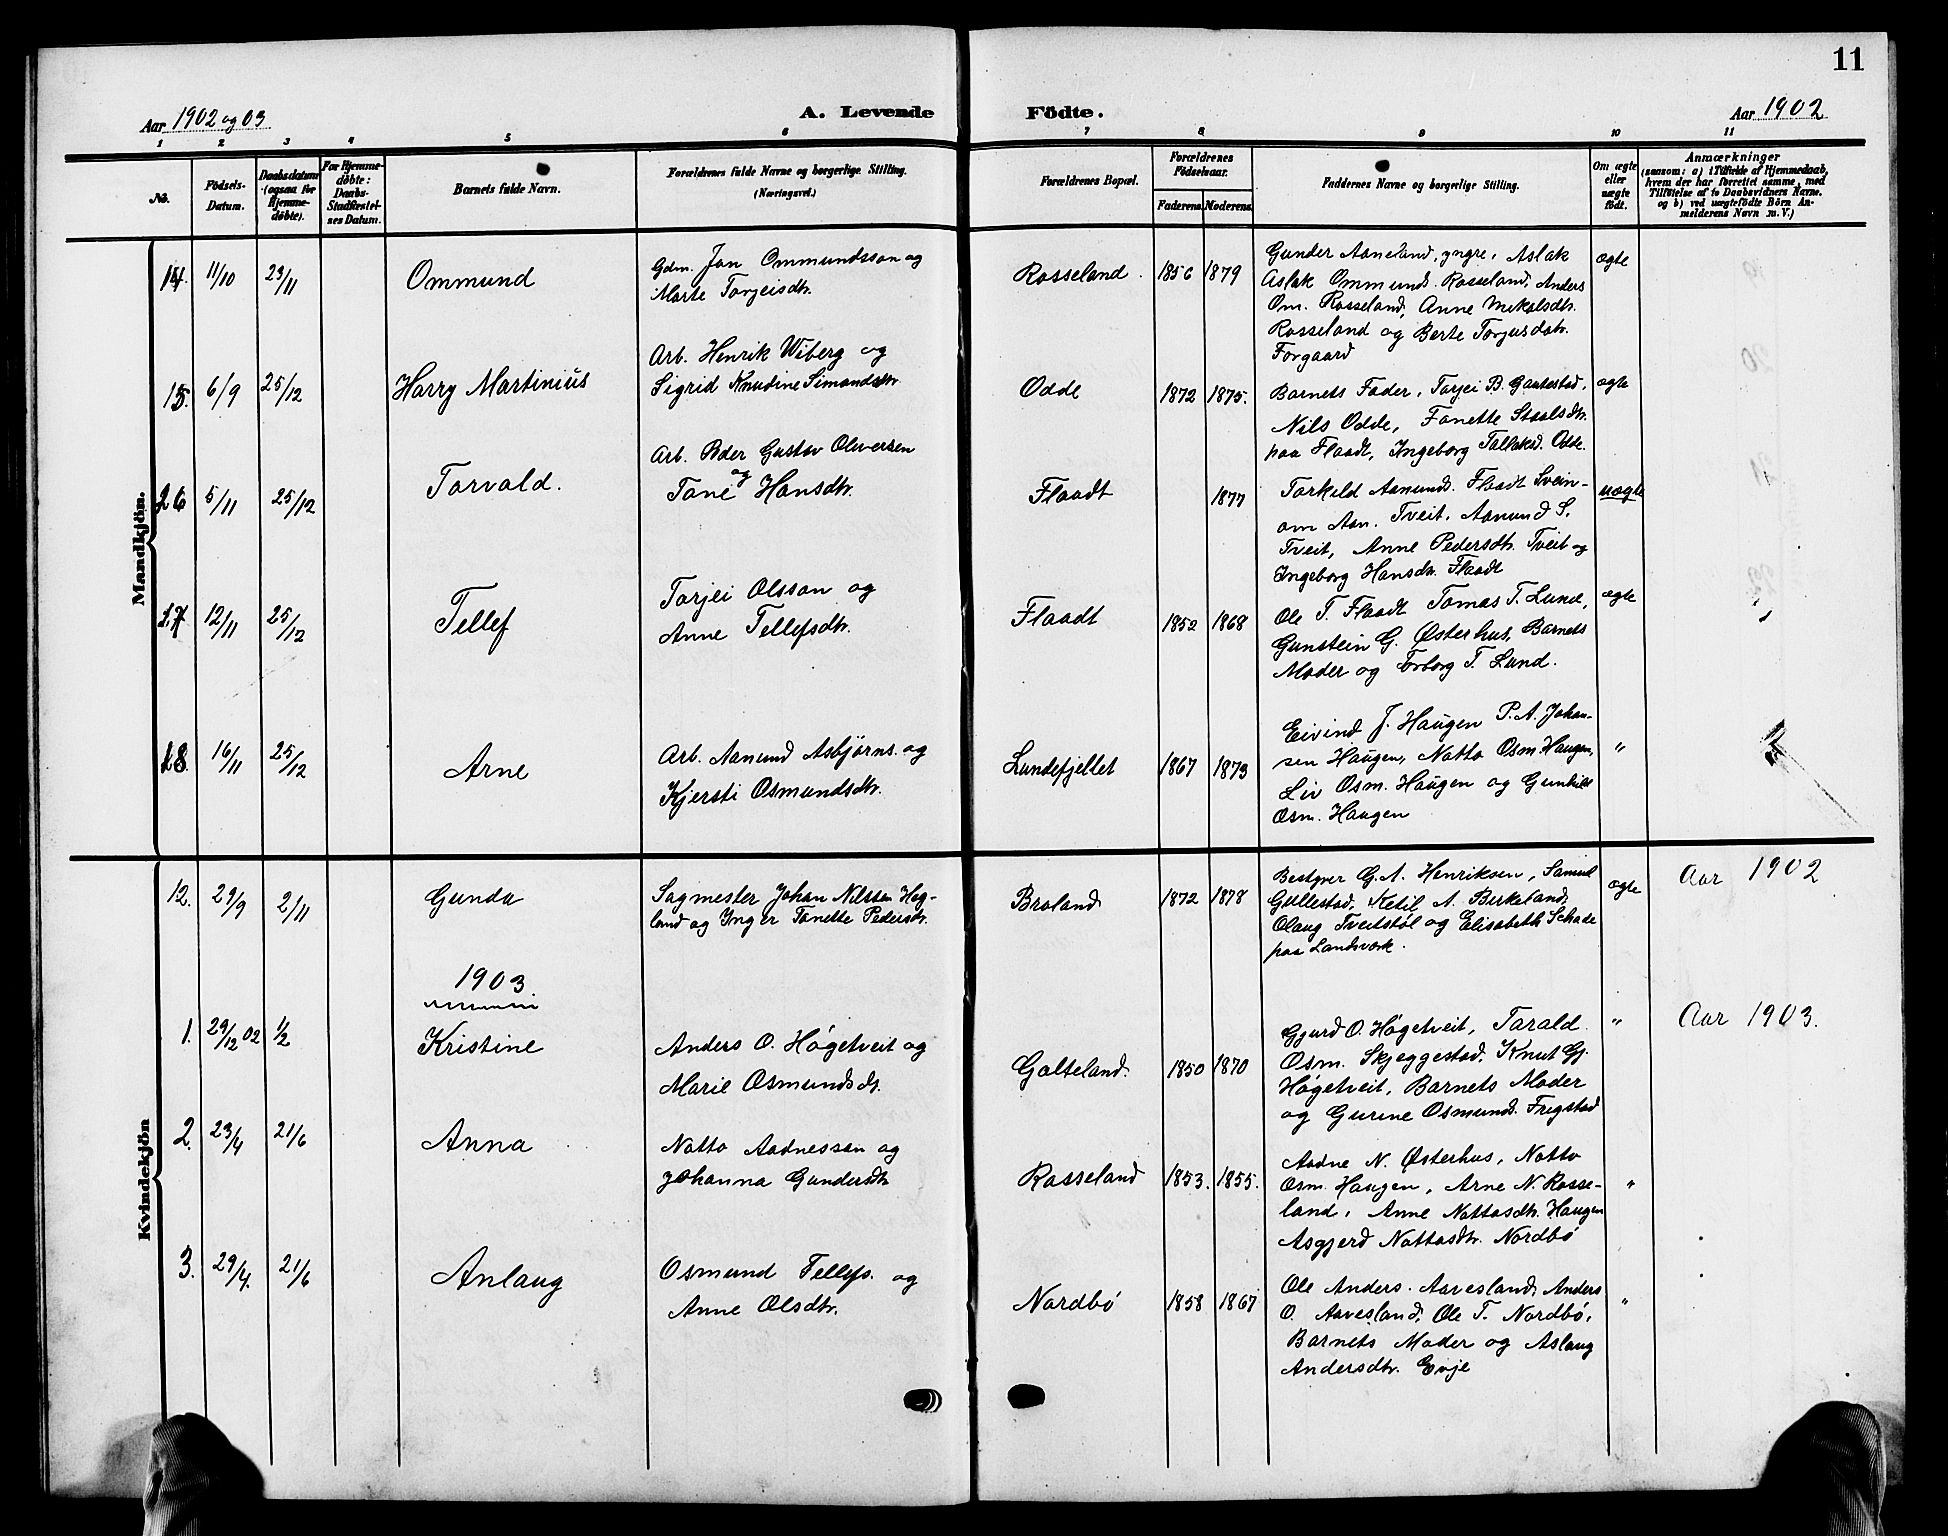 11
Aar 1902 og 03
A. Levende Födte.
Aar 1902
1 2 3 4 5 6 7 8 9 10 11
No.
Födsels-Datum.
Daabsdatum (ogsaa for Hjemmedöbte).
For Hjemmedöbte: Daabs-Stadfæstelses Datum.
Barnets fulde Navn.
Forældrenes fulde Navne og borgerlige Stilling. (Næringsvei.)
Forældrenes Bopæl.
Forældrenes Födselsaar.
Faderens. Moderens.
Faddernes Navne og borgerlige Stilling.
Om ægte eller uægte födt.
Anmærkninger
(saasom: a) i Tilfælde af Hjemmedaab, hvem der har forrettet samme, med Tilföielse af to Daabsvidners Navne, og b) ved uægtefödte Börn Anmelderens Navn m. V.)
Mandkjön.
14. 11/10 23/11 Ommund
Gdm. Jon Ommundsson og
Marte Torjeisdtr.
Rosseland. 1856 1879
Gunder Aaneland, yngre, Aslak
Aslak Ommunds. Rosseland, Anders
Om. Rosseland, Anne Mikalsdtr.
Rosseland og Berte Torjusdotr.
Forgaard
ægte
15. 6/9 25/12 Harry Martinius
Arb. Henrik Wiberg og
Sigrid Knudine Simondsdtr
Odde 1872 1875.
Barnets Fader, Torjei B. Gautestad,
Nils Odde, Fanette Staalsdtr.
paa Flaadt, Ingeborg Tallaksd. Odde.
ægte
16 5/11 25/12 Torvald.
Arb. Peder Gustav Oliversen
og
Tone Hansdtr.
Flaadt 1877
Torkild Aanunds. Flaadt Svein-
om Aan. Tveit, Aanund S.
Tveit, Anne Pedersdtr. Tveit og
Ingeborg Hansdtr. Flaadt
uægte
17 12/11 25/12 Tellef
Torjei Olsson og
Anne Tellefsdtr.
Flaadt 1852 1868
Ole T. Flaadt Tomas T. Lund,
Gunstein G. Østerhus, Barnets
Moder og Torborg T. Lund.
ægte
18. 16/11 25/12 Arne
Arb. Aanund Asbjørns. og
Kjersti Osmundsdtr.
Lundefjellet 1867 1873
Eivind J. Haugen P. A. Johan-
sen Haugen, Notto Osm. Haugen,
Liv Osm. Haugen og Gunhild
Osm. Haugen
"
Kvindekjön
12. 29/9 2/11 Gunda
Sagmester Johan Nilsen Heg-
land og Inger Tonette Pedersdtr.
Broland 1872 1878
Bestyrer G. A. Henriksen, Samuel
Gullestad, Ketil A. Birkeland,
Olaug Tveitstøl og Elisabeth Schade
paa Landsverk.
ægte Aar 1902
1903
1. 29/12 02 1/2 Kristine
Anders O. Høgetveit og
Marie Osmundsdt.
Galteland. 1850 1870
Gjurd O. Høgetveit, Tarald
Osm. Skjeggestad, Knut Gj.
Høgetveit, Barnets Moder
og Gurine Osmunds. Frigstad
" Aar 1903.
2. 23/4 21/6 Anna
Notto Aadnesson og
Johanna Gundersdtr
Rosseland 1853. 1855.
Aadne N. Østerhus, Notto
Osm. Haugen, Arne N. Rosse-
land, Anne Nottosdtr. Haugen
Asgjerd Nottosdtr. Nordbø
"
3. 29/4. 21/6 Anlaug
Osmund Tellefs. og
Anne Olsdtr.
Nordbø 1858 1867
Ole Anders. Aavesland, Anders
O. Aavesland, Ole T. Nordbø,
Barnets Moder og Aslaug
Andersdtr. Evje
"